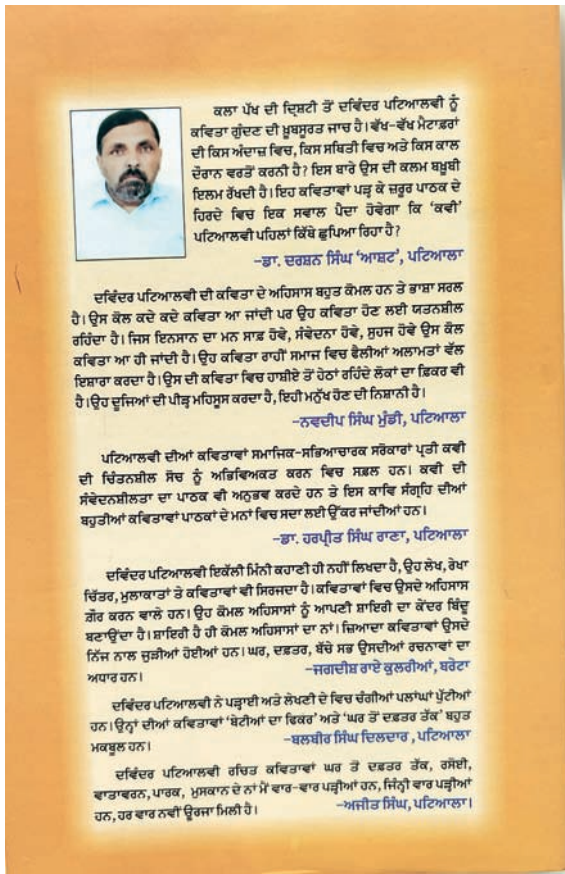 ਕਲਾ ਪੱਖ ਦੀ ਦ੍ਰਿਸ਼ਟੀ ਤੋਂ ਦਵਿੰਦਰ ਪਟਿਆਲਵੀ ਨੂੰ
ਕਵਿਤਾ ਗੁੰਦਣ ਦੀ ਖ਼ੂਬਸੂਰਤ ਜਾਚ ਹੈ। ਵੱਖ-ਵੱਖ ਮੈਟਾਫ਼ਰਾਂ
ਦੀ ਕਿਸ ਅੰਦਾਜ਼ ਵਿਚ, ਕਿਸ ਸਥਿਤੀ ਵਿਚ ਅਤੇ ਕਿਸ ਕਾਲ
ਦੌਰਾਨ ਵਰਤੋਂ ਕਰਨੀ ਹੈ? ਇਸ ਬਾਰੇ ਉਸ ਦੀ ਕਲਮ ਬਖ਼ੂਬੀ
ਇਲਮ ਰੱਖਦੀ ਹੈ। ਇਹ ਕਵਿਤਾਵਾਂ ਪੜ੍ਹ ਕੇ ਜ਼ਰੂਰ ਪਾਠਕ ਦੇ
ਹਿਰਦੇ ਵਿਚ ਇਕ ਸਵਾਲ ਪੈਦਾ ਹੋਵੇਗਾ ਕਿ 'ਕਵੀ'
ਪਟਿਆਲਵੀ ਪਹਿਲਾਂ ਕਿੱਥੇ ਛੁਪਿਆ ਰਿਹਾ ਹੈ?
-ਡਾ. ਦਰਸ਼ਨ ਸਿੰਘ 'ਆਸ਼ਟ', ਪਟਿਆਲਾ
ਦਵਿੰਦਰ ਪਟਿਆਲਵੀ ਦੀ ਕਵਿਤਾ ਦੇ ਅਹਿਸਾਸ ਬਹੁਤ ਕੋਮਲ ਹਨ ਤੇ ਭਾਸ਼ਾ ਸਰਲ
ਹੈ। ਉਸ ਕੋਲ ਕਦੇ ਕਦੇ ਕਵਿਤਾ ਆ ਜਾਂਦੀ ਪਰ ਉਹ ਕਵਿਤਾ ਹੋਣ ਲਈ ਯਤਨਸ਼ੀਲ
ਰਹਿੰਦਾ ਹੈ। ਜਿਸ ਇਨਸਾਨ ਦਾ ਮਨ ਸਾਫ਼ ਹੋਵੇ, ਸੰਵੇਦਨਾ ਹੋਵੇ, ਸੁਹਜ ਹੋਵੇ ਉਸ ਕੋਲ
ਕਵਿਤਾ ਆ ਹੀ ਜਾਂਦੀ ਹੈ। ਉਹ ਕਵਿਤਾ ਰਾਹੀਂ ਸਮਾਜ ਵਿਚ ਫੈਲੀਆਂ ਅਲਾਮਤਾਂ ਵੱਲ
ਇਸ਼ਾਰਾ ਕਰਦਾ ਹੈ। ਉਸ ਦੀ ਕਵਿਤਾ ਵਿਚ ਹਾਸ਼ੀਏ ਤੋਂ ਹੇਠਾਂ ਰਹਿੰਦੇ ਲੋਕਾਂ ਦਾ ਫ਼ਿਕਰ ਵੀ
ਹੈ। ਉਹ ਦੂਜਿਆਂ ਦੀ ਪੀੜ ਮਹਿਸੂਸ ਕਰਦਾ ਹੈ, ਇਹੀ ਮਨੁੱਖ ਹੋਣ ਦੀ ਨਿਸ਼ਾਨੀ ਹੈ।
-ਨਵਦੀਪ ਸਿੰਘ ਮੁੰਡੀ, ਪਟਿਆਲਾ
ਪਟਿਆਲਵੀ ਦੀਆਂ ਕਵਿਤਾਵਾਂ ਸਮਾਜਿਕ-ਸਭਿਆਚਾਰਕ ਸਰੋਕਾਰਾਂ ਪ੍ਰਤੀ ਕਵੀ
ਦੀ ਚਿੰਤਨਸ਼ੀਲ ਸੋਚ ਨੂੰ ਅਭਿਵਿਅਕਤ ਕਰਨ ਵਿਚ ਸਫ਼ਲ ਹਨ। ਕਵੀ ਦੀ
ਸੰਵੇਦਨਸ਼ੀਲਤਾ ਦਾ ਪਾਠਕ ਵੀ ਅਨੁਭਵ ਕਰਦੇ ਹਨ ਤੇ ਇਸ ਕਾਵਿ ਸੰਗ੍ਰਹਿ ਦੀਆਂ
ਬਹੁਤੀਆਂ ਕਵਿਤਾਵਾਂ ਪਾਠਕਾਂ ਦੇ ਮਨਾਂ ਵਿਚ ਸਦਾ ਲਈ ਉੱਕਰ ਜਾਂਦੀਆਂ ਹਨ।
-ਡਾ. ਹਰਪ੍ਰੀਤ ਸਿੰਘ ਰਾਣਾ, ਪਟਿਆਲਾ
ਦਵਿੰਦਰ ਪਟਿਆਲਵੀ ਇਕੱਲੀ ਮਿੰਨੀ ਕਹਾਣੀ ਹੀ ਨਹੀਂ ਲਿਖਦਾ ਹੈ, ਉਹ ਲੇਖ, ਰੇਖਾ
ਚਿੱਤਰ, ਮੁਲਾਕਾਤਾਂ ਤੇ ਕਵਿਤਾਵਾਂ ਵੀ ਸਿਰਜਦਾ ਹੈ। ਕਵਿਤਾਵਾਂ ਵਿਚ ਉਸਦੇ ਅਹਿਸਾਸ
ਗ਼ੌਰ ਕਰਨ ਵਾਲੇ ਹਨ। ਉਹ ਕੋਮਲ ਅਹਿਸਾਸਾਂ ਨੂੰ ਆਪਣੀ ਸ਼ਾਇਰੀ ਦਾ ਕੇਂਦਰ ਬਿੰਦੂ
ਬਣਾਉਂਦਾ ਹੈ। ਸ਼ਾਇਰੀ ਹੈ ਹੀ ਕੋਮਲ ਅਹਿਸਾਸਾਂ ਦਾ ਨਾਂ। ਜ਼ਿਆਦਾ ਕਵਿਤਾਵਾਂ ਉਸਦੇ
ਨਿੱਜ ਨਾਲ ਜੁੜੀਆਂ ਹੋਈਆਂ ਹਨ। ਘਰ, ਦਫ਼ਤਰ, ਬੱਚੇ ਸਭ ਉਸਦੀਆਂ ਰਚਨਾਵਾਂ ਦਾ
ਅਧਾਰ ਹਨ। -ਜਗਦੀਸ਼ ਰਾਏ ਕੁਲਰੀਆਂ, ਬਰੇਟਾ
ਦਵਿੰਦਰ ਪਟਿਆਲਵੀ ਨੇ ਪੜ੍ਹਾਈ ਅਤੇ ਲੇਖਣੀ ਦੇ ਵਿਚ ਚੰਗੀਆਂ ਪਲਾਂਘਾਂ ਪੁੱਟੀਆਂ
ਹਨ। ਉਨ੍ਹਾਂ ਦੀਆਂ ਕਵਿਤਾਵਾਂ 'ਬੇਟੀਆਂ ਦਾ ਫਿਕਰ' ਅਤੇ 'ਘਰ ਤੋਂ ਦਫ਼ਤਰ ਤੱਕ' ਬਹੁਤ
ਮਕਬੂਲ ਹਨ। -ਬਲਬੀਰ ਸਿੰਘ ਦਿਲਦਾਰ , ਪਟਿਆਲਾ
ਦਵਿੰਦਰ ਪਟਿਆਲਵੀ ਰਚਿਤ ਕਵਿਤਾਵਾਂ ਘਰ ਤੋਂ ਦਫ਼ਤਰ ਤੱਕ, ਰਸੋਈ,
ਵਾਤਾਵਰਨ, ਪਾਰਕ, ਮੁਸਕਾਨ ਦੇ ਨਾਂ ਮੈਂ ਵਾਰ-ਵਾਰ ਪੜ੍ਹੀਆਂ ਹਨ, ਜਿੰਨ੍ਹੀ ਵਾਰ ਪੜ੍ਹੀਆਂ
ਹਨ, ਹਰ ਵਾਰ ਨਵੀਂ ਊਰਜਾ ਮਿਲੀ ਹੈ। -ਅਜੀਤ ਸਿੰਘ, ਪਟਿਆਲਾ।